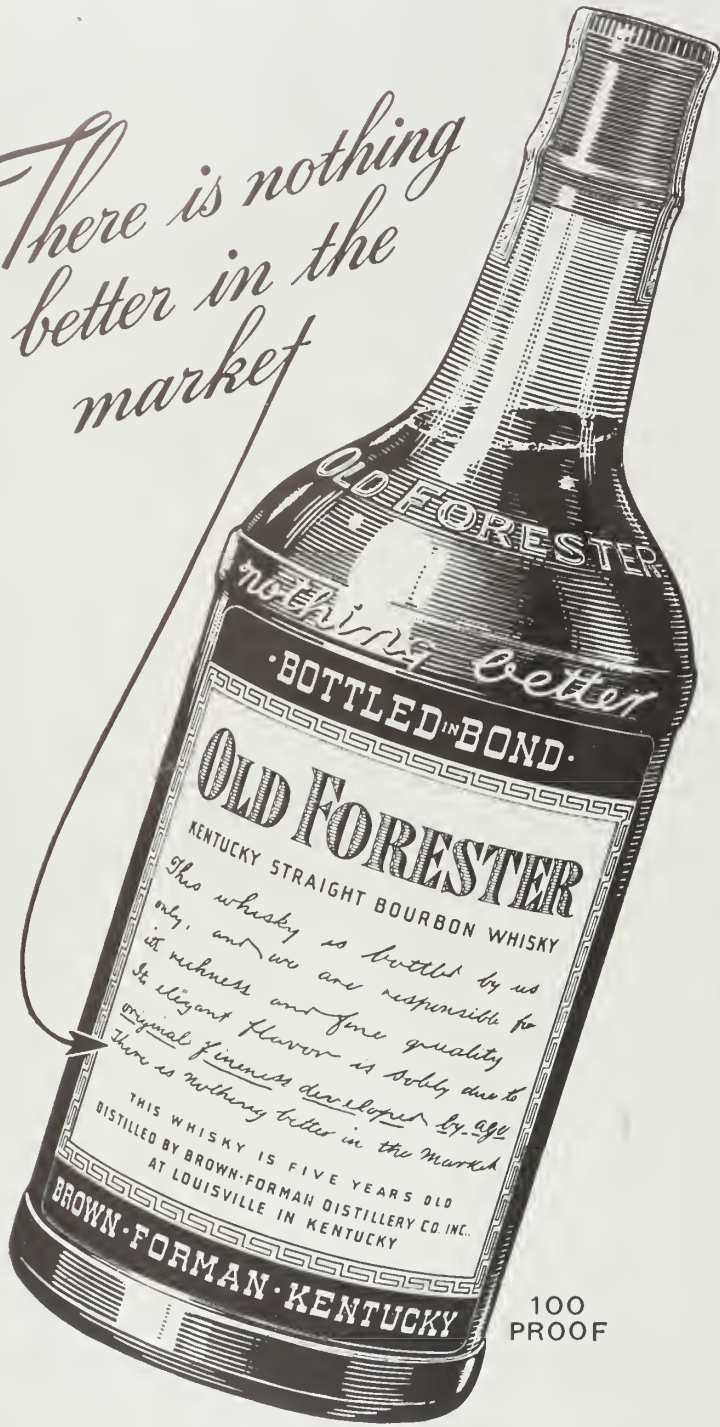 There is nothing
better in the
market
OLD FORESTER
nothing better
·BOTTLED IN BOND·
OLD FORESTER
KENTUCKY STRAIGHT BOURBON WHISKY
This whisky is bottled by us
only, and we are responsible for
its richness and fine quality
Its elegant flavor is solely due to
original fineness developed by age
There is nothing better in the market
THIS WHISKY IS FIVE YEARS OLD
DISTILLED BY BROWN-FORMAN DISTILLERY CO. INC.
AT LOUISVILLE IN KENTUCKY
BROWN·FORMAN·KENTUCKY
100
PROOF